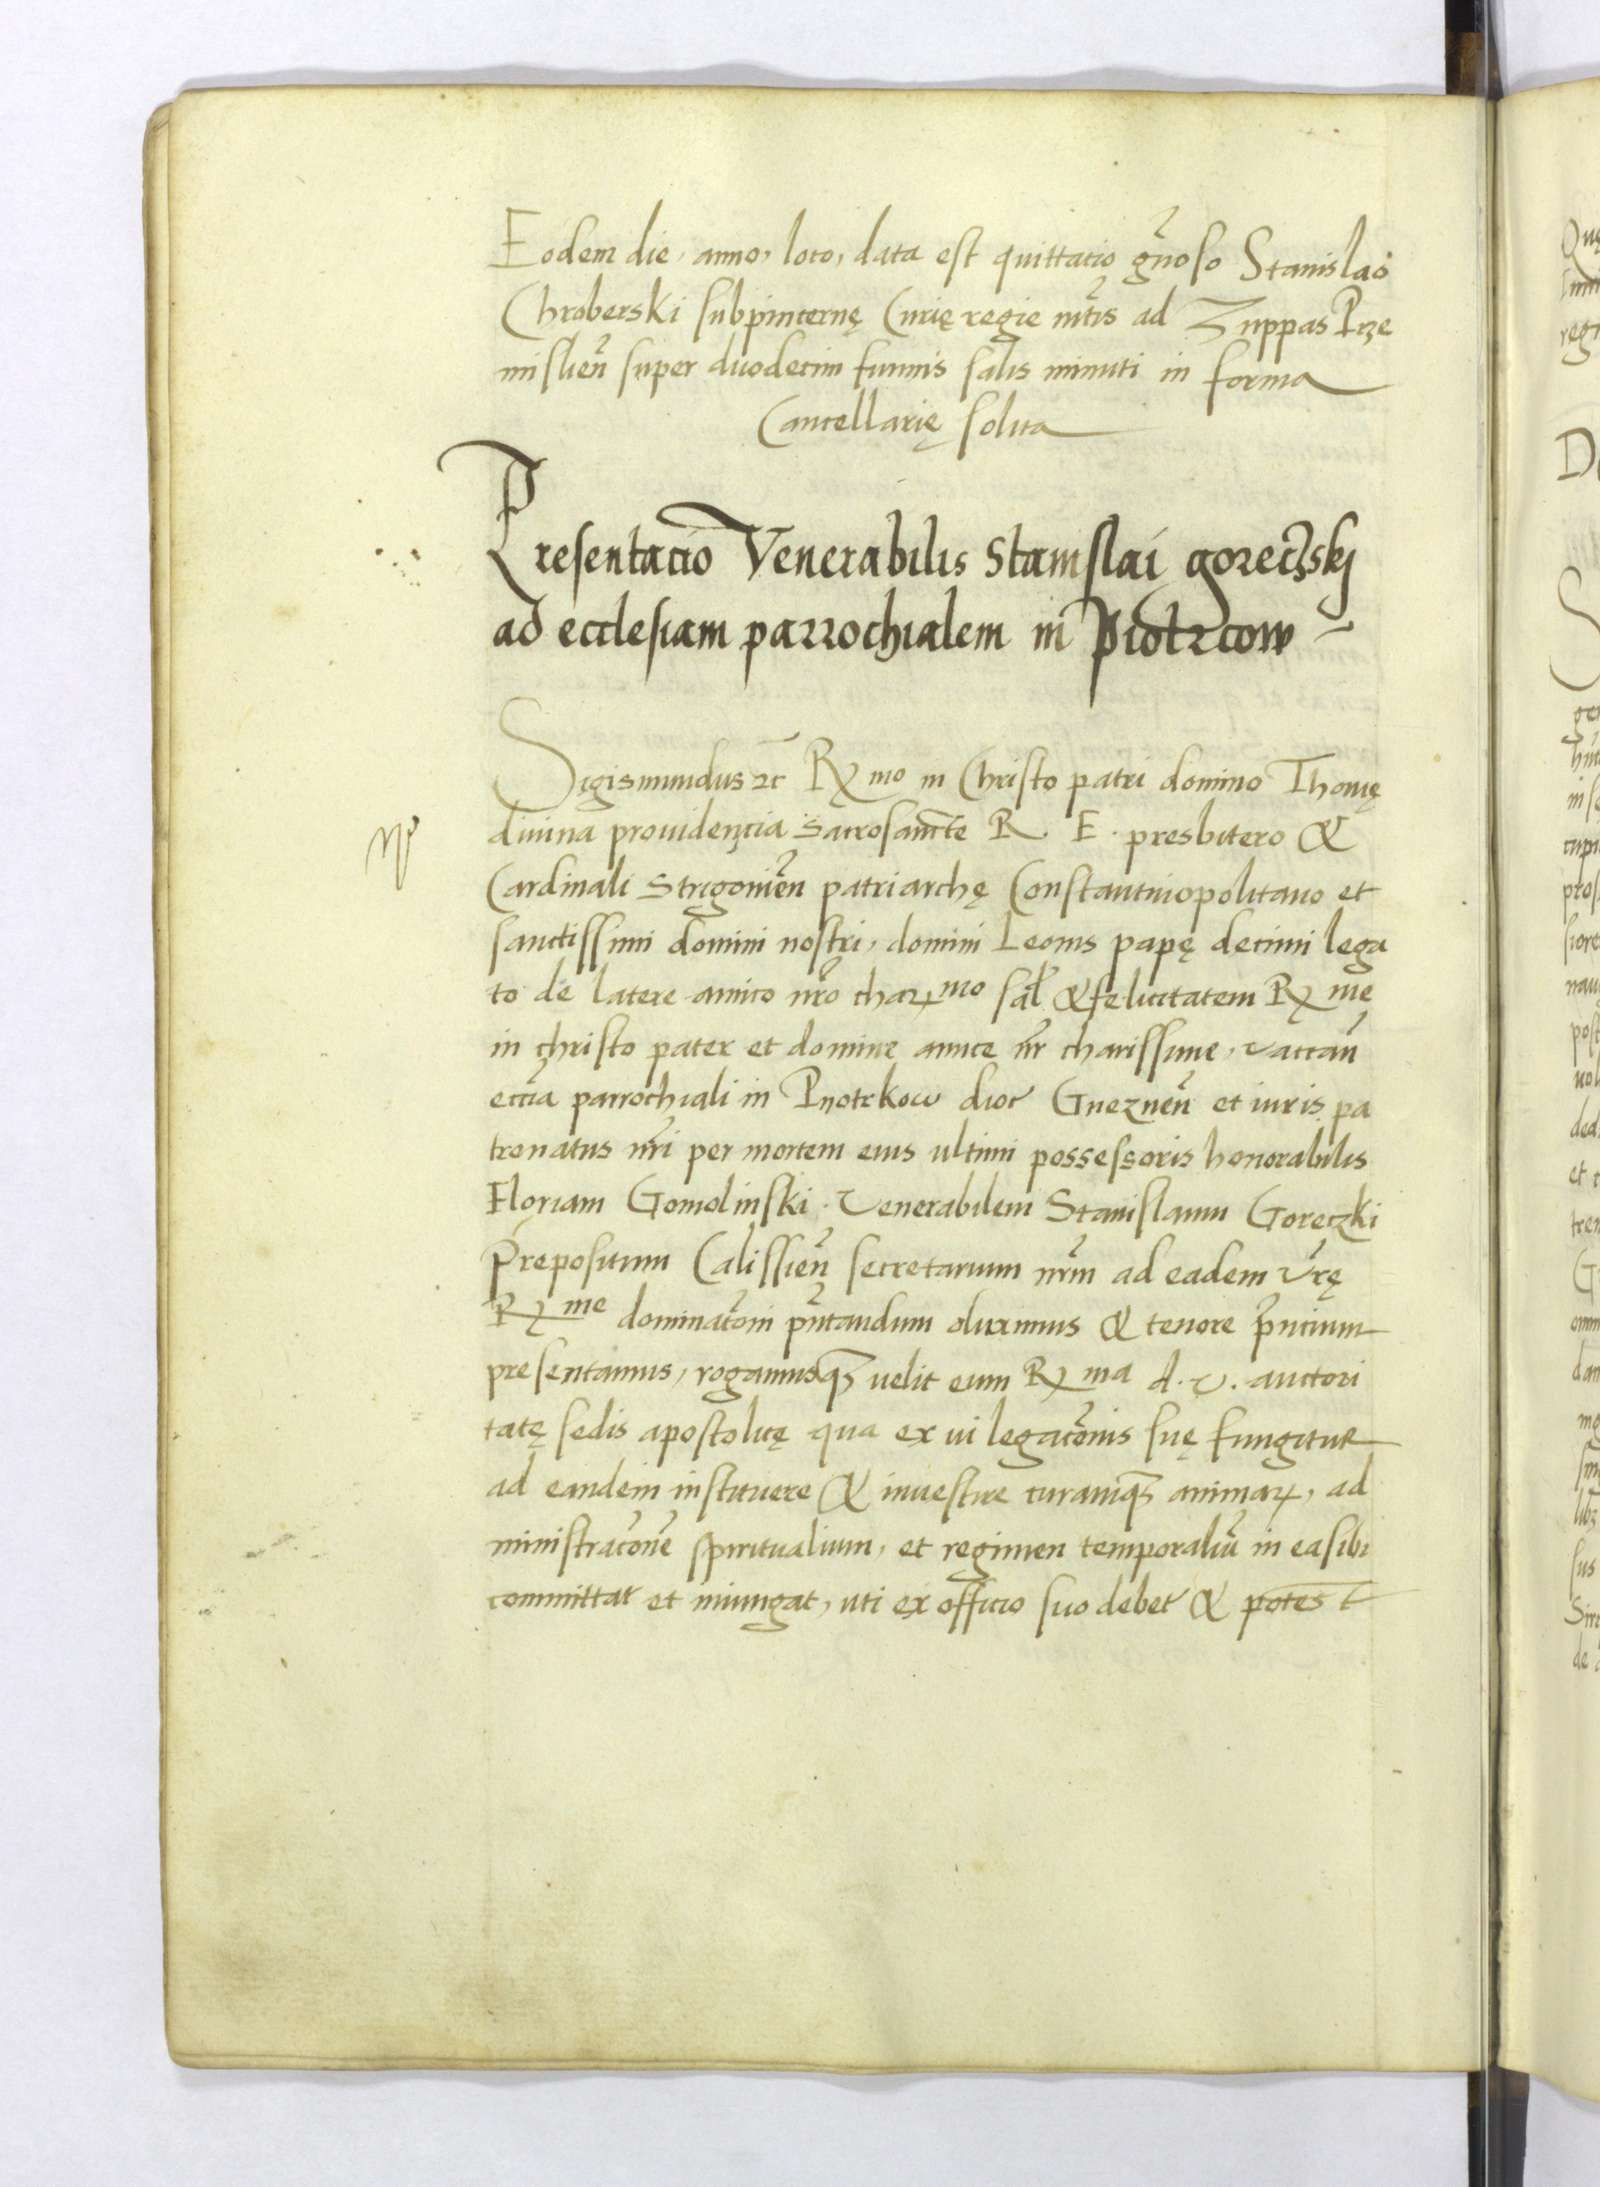 Eodem die, anno, loco, data est quittacio gn̄oso Stanislao
Chroberski subpincernę Curię regie ad Zuppas Prze
mislien̄ super duodecim tunnis salis minuti in forma
Cancellarię solita
Presentacio Venerabilis Stanislai goreczskj
ad ecclesiam parrochialem in Piotrcow
Sigismundus ⁊c Rx mo in Christo patri domino Thomę
diuina prouidencia Sacrosancte R. E. presbitero &
Cardinali Strigonien̄ patriarchę Constantinopolitano et
sanctissimi domini nostri, domini Leonis papę decimi lega
to de latere amico nr̄o charꝝmo sal̄ & felicitatem Rx me
in christo pater et domine amice nr̄ charissime, vaccan̄
eccīa parrochiali in Pyotrkow dioc Gneznen̄ et iuris pa
tronatus nr̄i per mortem eius ultimi possessoris honorabilis
Floriani Gomolinski. Venerabilem Stanislaum Goreczki
Prepositum Calissien̄ secretarium nr̄m ad eadem vr̄ę
Rx me dominacōni pn̄tandum duximus & tenore pn̄cium
presentamus, rogamusqꝫ velit eum Rx ma d. v. auctori
tatę sedis apostolicę qua ex ui legacōnis suę fungitur
ad eandem instituere & inuestire curamqꝫ animaꝝ, ad
ministracōne spiritualium, et regimen temporaliū in ea sibi
committat et iniungat, uti ex officio suo debet & potest